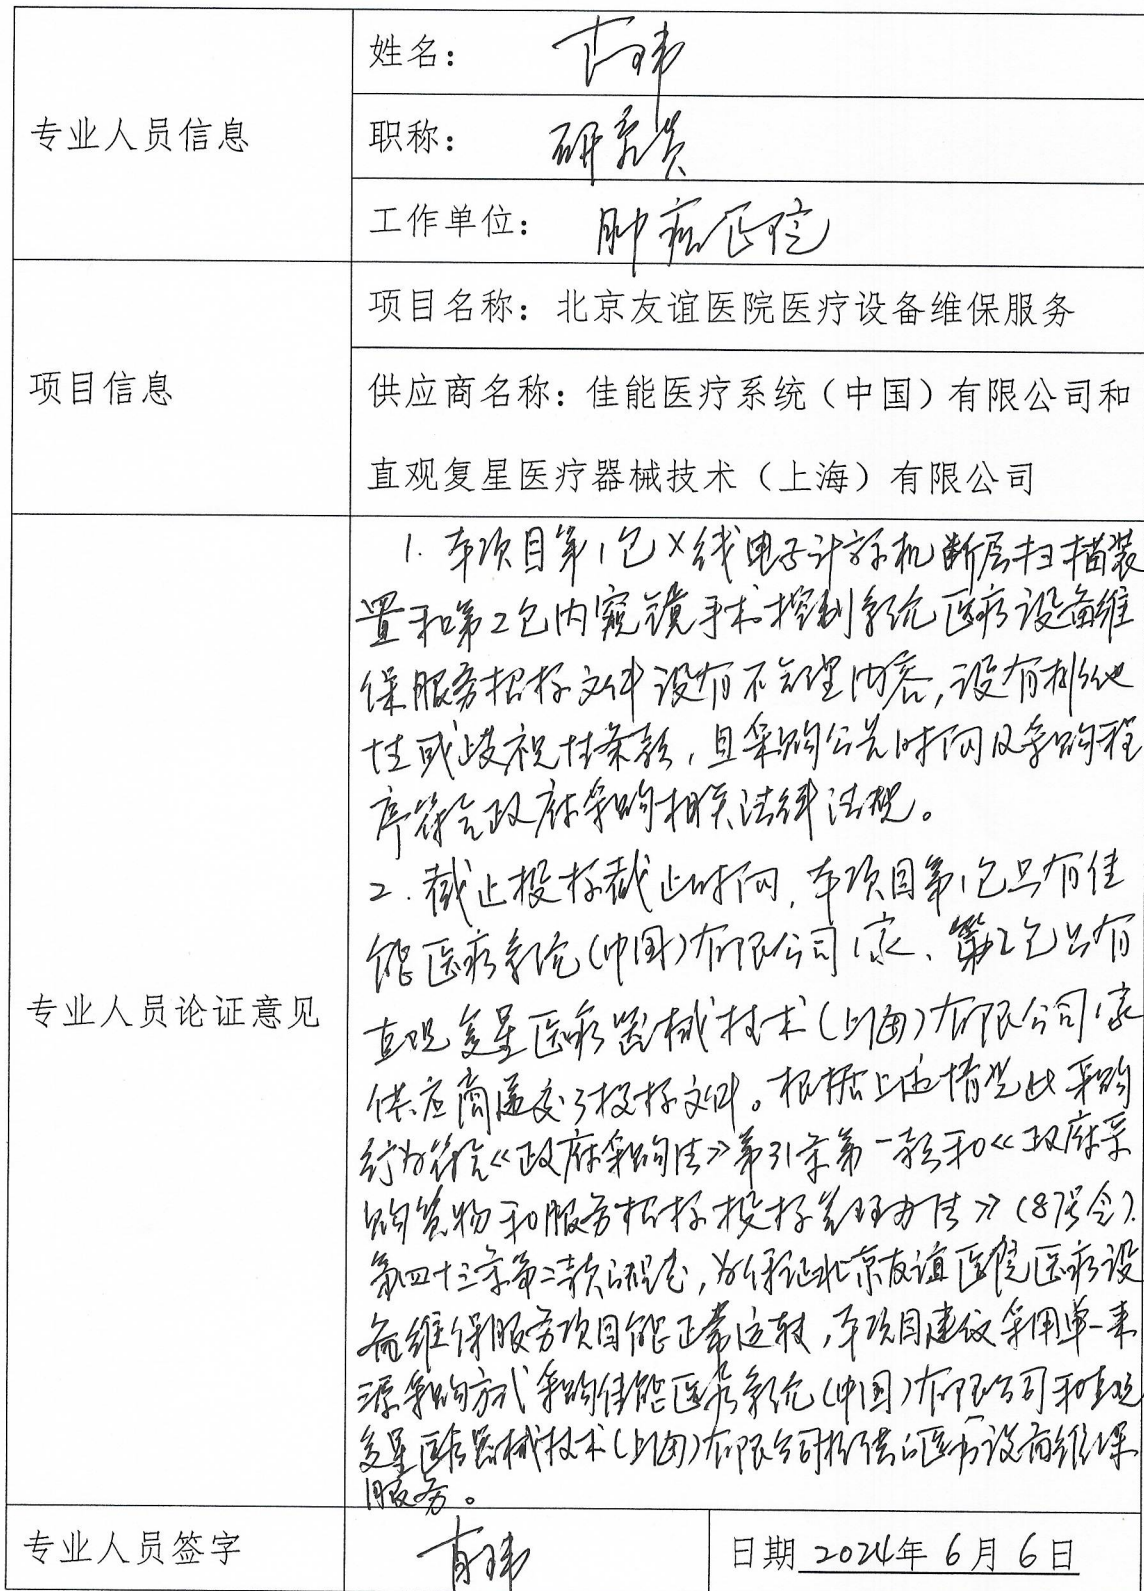 专业人员信息
姓名：
职称：研究员
工作单位：肿瘤医院
项目信息
项目名称：北京友谊医院医疗设备维保服务
供应商名称：佳能医疗系统（中国）有限公司和
直观复星医疗器械技术（上海）有限公司
专业人员论证意见
1. 本项目第1包X线电子计算机断层扫描装
置和第2包内窥镜手术控制系统医疗设备维
保服务招标文件没有不合理内容，没有排他
性或歧视性条款，且采购公告时间及采购程
序符合政府采购相关法律法规。
2. 截止投标截止时间，本项目第1包只有佳
能医疗系统（中国）有限公司1家、第2包只有
直观复星医疗器械技术（上海）有限公司1家
供应商递交了投标文件。根据上述情况此采购
行为符合《政府采购法》第31条第一款和《政府采
购货物和服务招标投标管理办法》（87号令）
第四十三条第二款规定，为保证北京友谊医院医疗设
备维保服务项目能正常运转，本项目建议采用单一来
源采购方式采购佳能医疗系统（中国）有限公司和直观
复星医疗器械技术（上海）有限公司提供的医疗设备维保
服务。
专业人员签字
日期 2024年6月6日